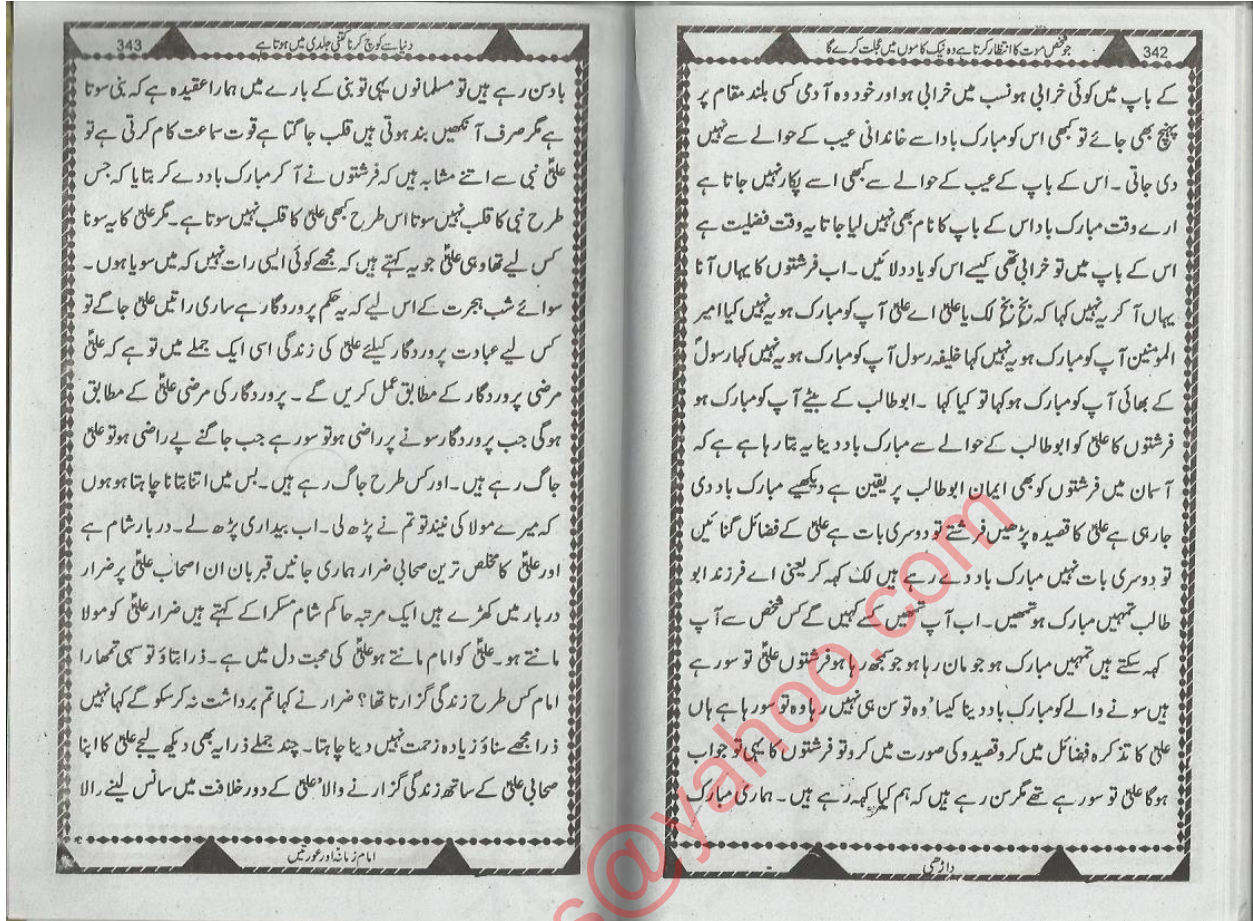 جو شخص موت کا انتظار کرتا ہے وہ نیک کاموں میں عجلت کرے گا
342
کے باپ میں کوئی خرابی ہو نسب میں خرابی ہو اور خود وہ آدمی کسی بلند مقام پر
پہنچ بھی جائے تو کبھی اس کو مبارک باد اسے خاندانی عیب کے حوالے سے نہیں
دی جاتی ۔ اس کے باپ کے عیب کے حوالے سے کبھی اسے پکار نہیں جاتا ہے
ارے وقت مبارک باد اس کے باپ کا نام بھی نہیں لیا جاتا یہ وقت فضلیت ہے
اس کے باپ میں تو خرابی تھی کیسے اس کو یاد دلائیں ۔ اب فرشتوں کا یہاں آنا
یہاں آ کر یہ نہیں کہا کہ بخٍ بخٍ لک یا علیؑ اے علیؑ آپ کو مبارک ہو یہ نہیں کیا امیر
المومنین آپ کو مبارک ہو یہ نہیں کہا خلیفہ رسول آپ کو مبارک ہو یہ نہیں کہا رسولؐ
کے بھائی آپ کو مبارک ہو کہا تو کیا کہا ۔ ابو طالب کے بیٹے آپ کو مبارک ہو
فرشتوں کا علیؑ کو ابو طالب کے حوالے سے مبارک باد دینا یہ بتا رہا ہے ہے کہ
آسمان میں فرشتوں کو بھی ایمان ابو طالب پر یقین ہے دیکھیے مبارک باد دی
جا رہی ہے علیؑ کا قصیدہ پڑھیں فرشتے تو دوسری بات ہے علیؑ کے فضائل گنائیں
تو دوسری بات نہیں مبارک باد دے رہے ہیں لک کہہ کر یعنی اے فرزند ابو
طالب تمہیں مبارک ہو تمھیں ۔ اب آپ تمھیں کسے کہیں گے کس شخص سے آپ
کہہ سکتے ہیں تمہیں مبارک ہو جو مان رہا ہو جو سمجھ رہا ہو فرشتوں علیؑ تو سو رہے
ہیں سونے والے کو مبارک باد دینا کیسا' وہ تو سن ہی نہیں رہا وہ تو سو رہا ہے ہاں
علیؑ کا تذکرہ فضائل میں کرو قصیدہ کی صورت میں کرو تو فرشتوں کا یہی تو جواب
ہوگا علیؑ تو سو رہے تھے مگر سن رہے ہیں کہ ہم کیا کہہ رہے ہیں ۔ ہماری مبارک
داڑھی
دنیا سے کوچ کرنا کتنی جلدی میں ہوتا ہے
343
باد سن رہے ہیں تو مسلمانوں یہی تو نبی کے بارے میں ہمارا عقیدہ ہے کہ نبی سوتا
ہے مگر صرف آنکھیں بند ہوتی ہیں قلب جاگتا ہے قوت سماعت کام کرتی ہے تو
علیؑ نبی سے اتنے مشابہ ہیں کہ فرشتوں نے آ کر مبارک باد دے کر بتایا کہ جس
طرح نبی کا قلب نہیں سوتا اس طرح کبھی علیؑ کا قلب نہیں سوتا ہے ۔ مگر علیؑ کا یہ سونا
کس لیے تھا وہی علیؑ جو یہ کہتے ہیں کہ مجھے کوئی ایسی رات نہیں کہ میں سویا ہوں ۔
سوائے شب ہجرت کے اس لیے کہ یہ حکم پروردگار ہے ساری راتیں علیؑ جاگے تو
کس لیے عبادت پروردگار کیلئے علیؑ کی زندگی اسی ایک جملے میں تو ہے کہ علیؑ
مرضی پروردگار کے مطابق عمل کریں گے ۔ پروردگار کی مرضی علیؑ کے مطابق
ہوگی جب پروردگار سونے پر راضی ہو تو سو رہے جب جاگنے پے راضی ہو تو علیؑ
جاگ رہے ہیں ۔ اور کس طرح جاگ رہے ہیں ۔ بس میں اتنا بتانا چاہتا ہو ہوں
کہ میرے مولا کی نیند تو تم نے پڑھ لی ۔ اب بیداری پڑھ لے ۔ دربار شام ہے
اور علیؑ کا مخلص ترین صحابی ضرار ہماری جانیں قربان ان اصحاب علیؑ پر ضرار
دربار میں کھڑے ہیں ایک مرتبہ حاکم شام مسکرا کے کہتے ہیں ضرار علیؑ کو مولا
مانتے ہو ۔ علیؑ کو امام مانتے ہو علیؑ کی محبت دل میں ہے ۔ ذرا بتاؤ تو سہی تمھارا
امام کس طرح زندگی گزارتا تھا ؟ ضرار نے کہا تم برداشت نہ کر سکو گے کہا نہیں
ذرا مجھے سناؤ زیادہ زحمت نہیں دینا چاہتا ۔ چند جملے ذرا یہ بھی دیکھ لیجے علیؑ کا اپنا
صحابی علیؑ کے ساتھ زندگی گزارنے والا' علیؑ کے دور خلافت میں سانس لینے والا
امام زمانہ اور عورتیں
s@yahoo.com